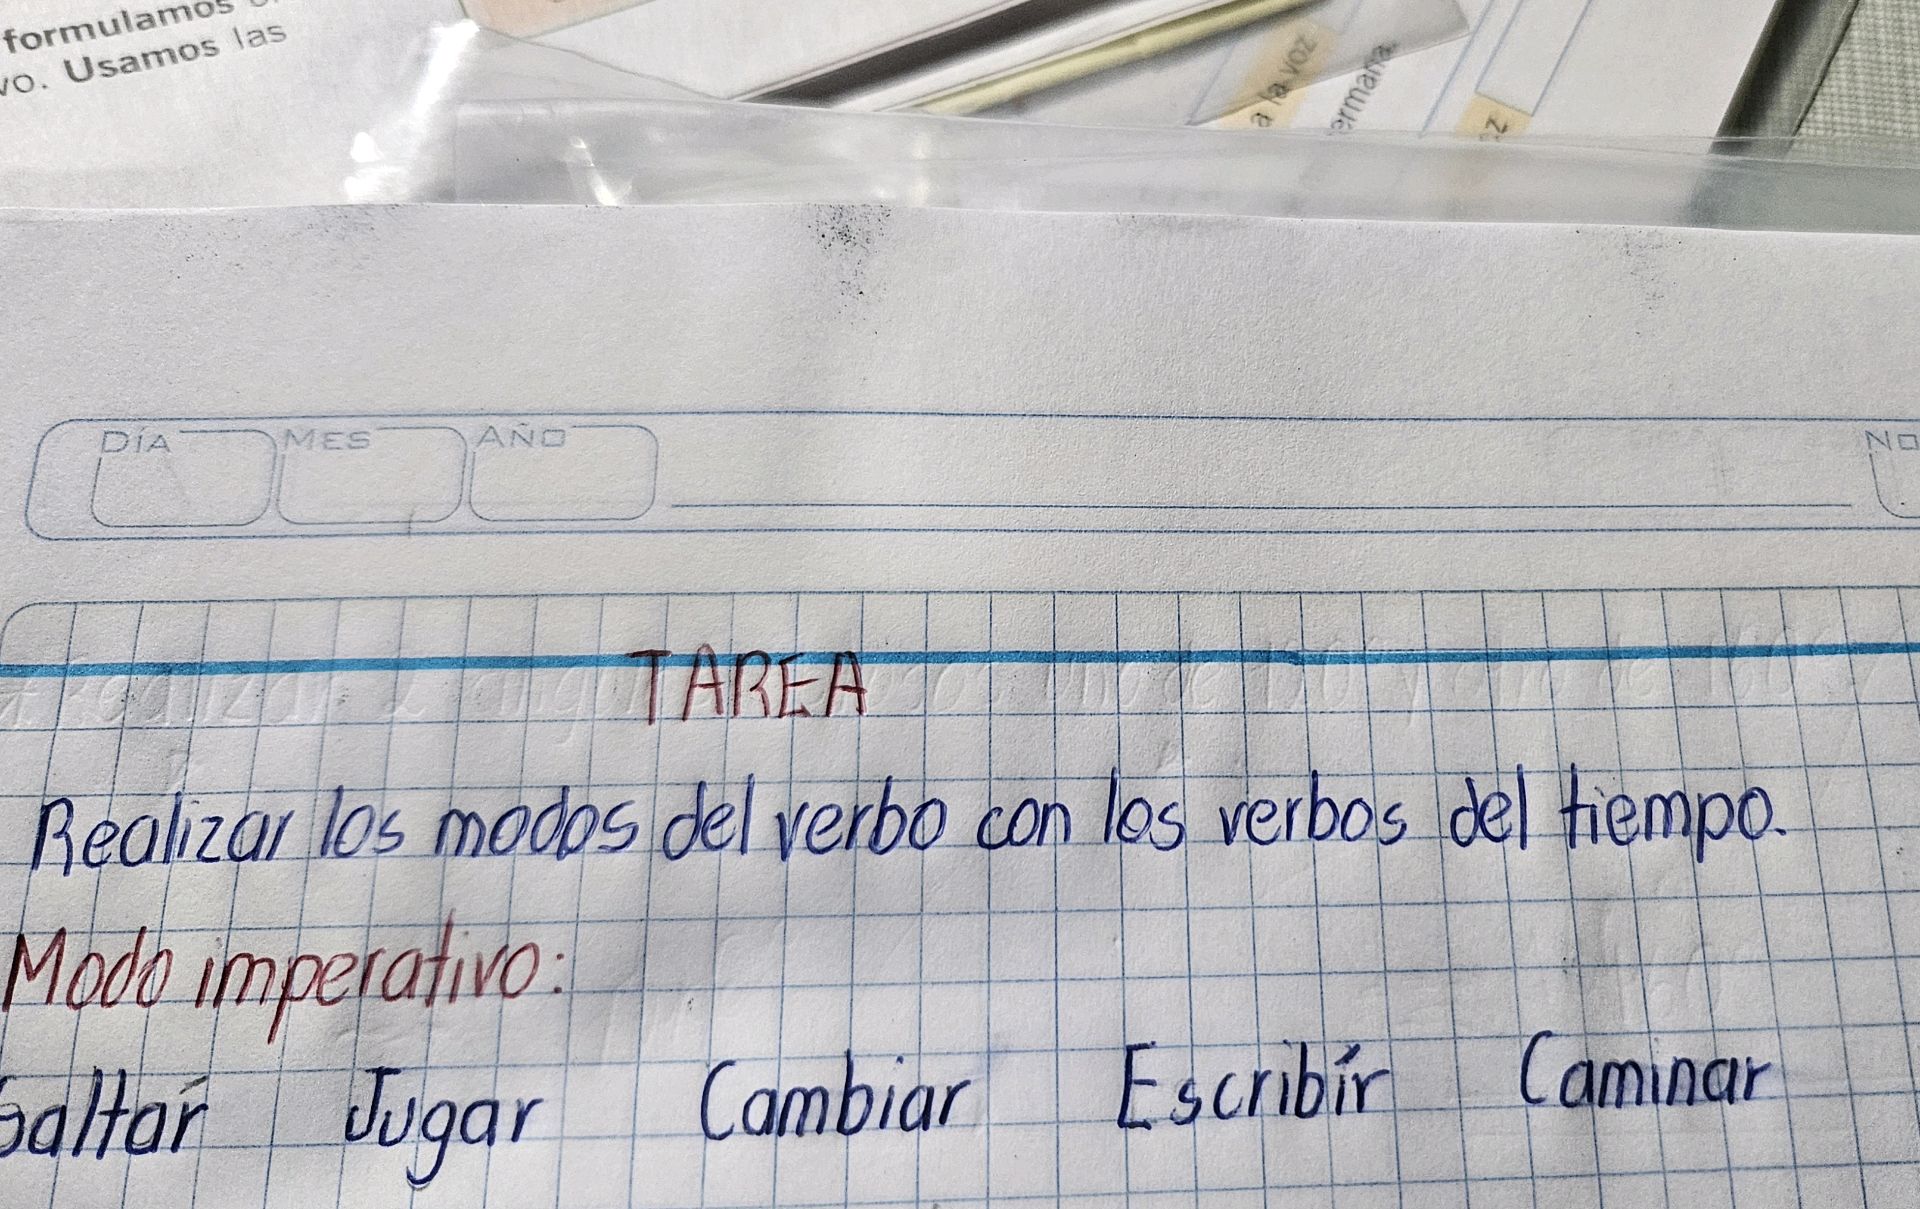 formulamos
vo. Usamos las
a la voz
ermana
z
DÍA MES AÑO
TAREA
Realizar los modos del verbo con los verbos del tiempo.
Modo imperativo:
Saltar Jugar Cambiar Escribír Caminar